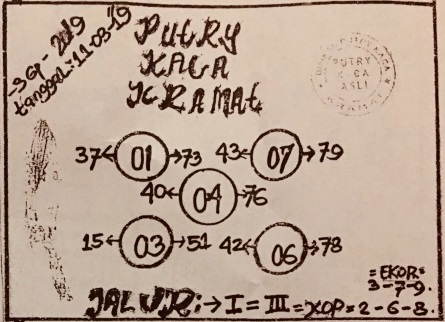 -SGP- 2019
tanggal: 11-03-'19
PUTRY
KACA
KRAMAt
PUTRY
KACA
ASLI
37 ← 01 → 73 43 ← 07 → 79
40 ← 04 → 76
15 ← 03 → 51 42 ← 06 → 78
=EKOR=
3-7-9.
JALUR: → I = III = KOP = 2-6-8.